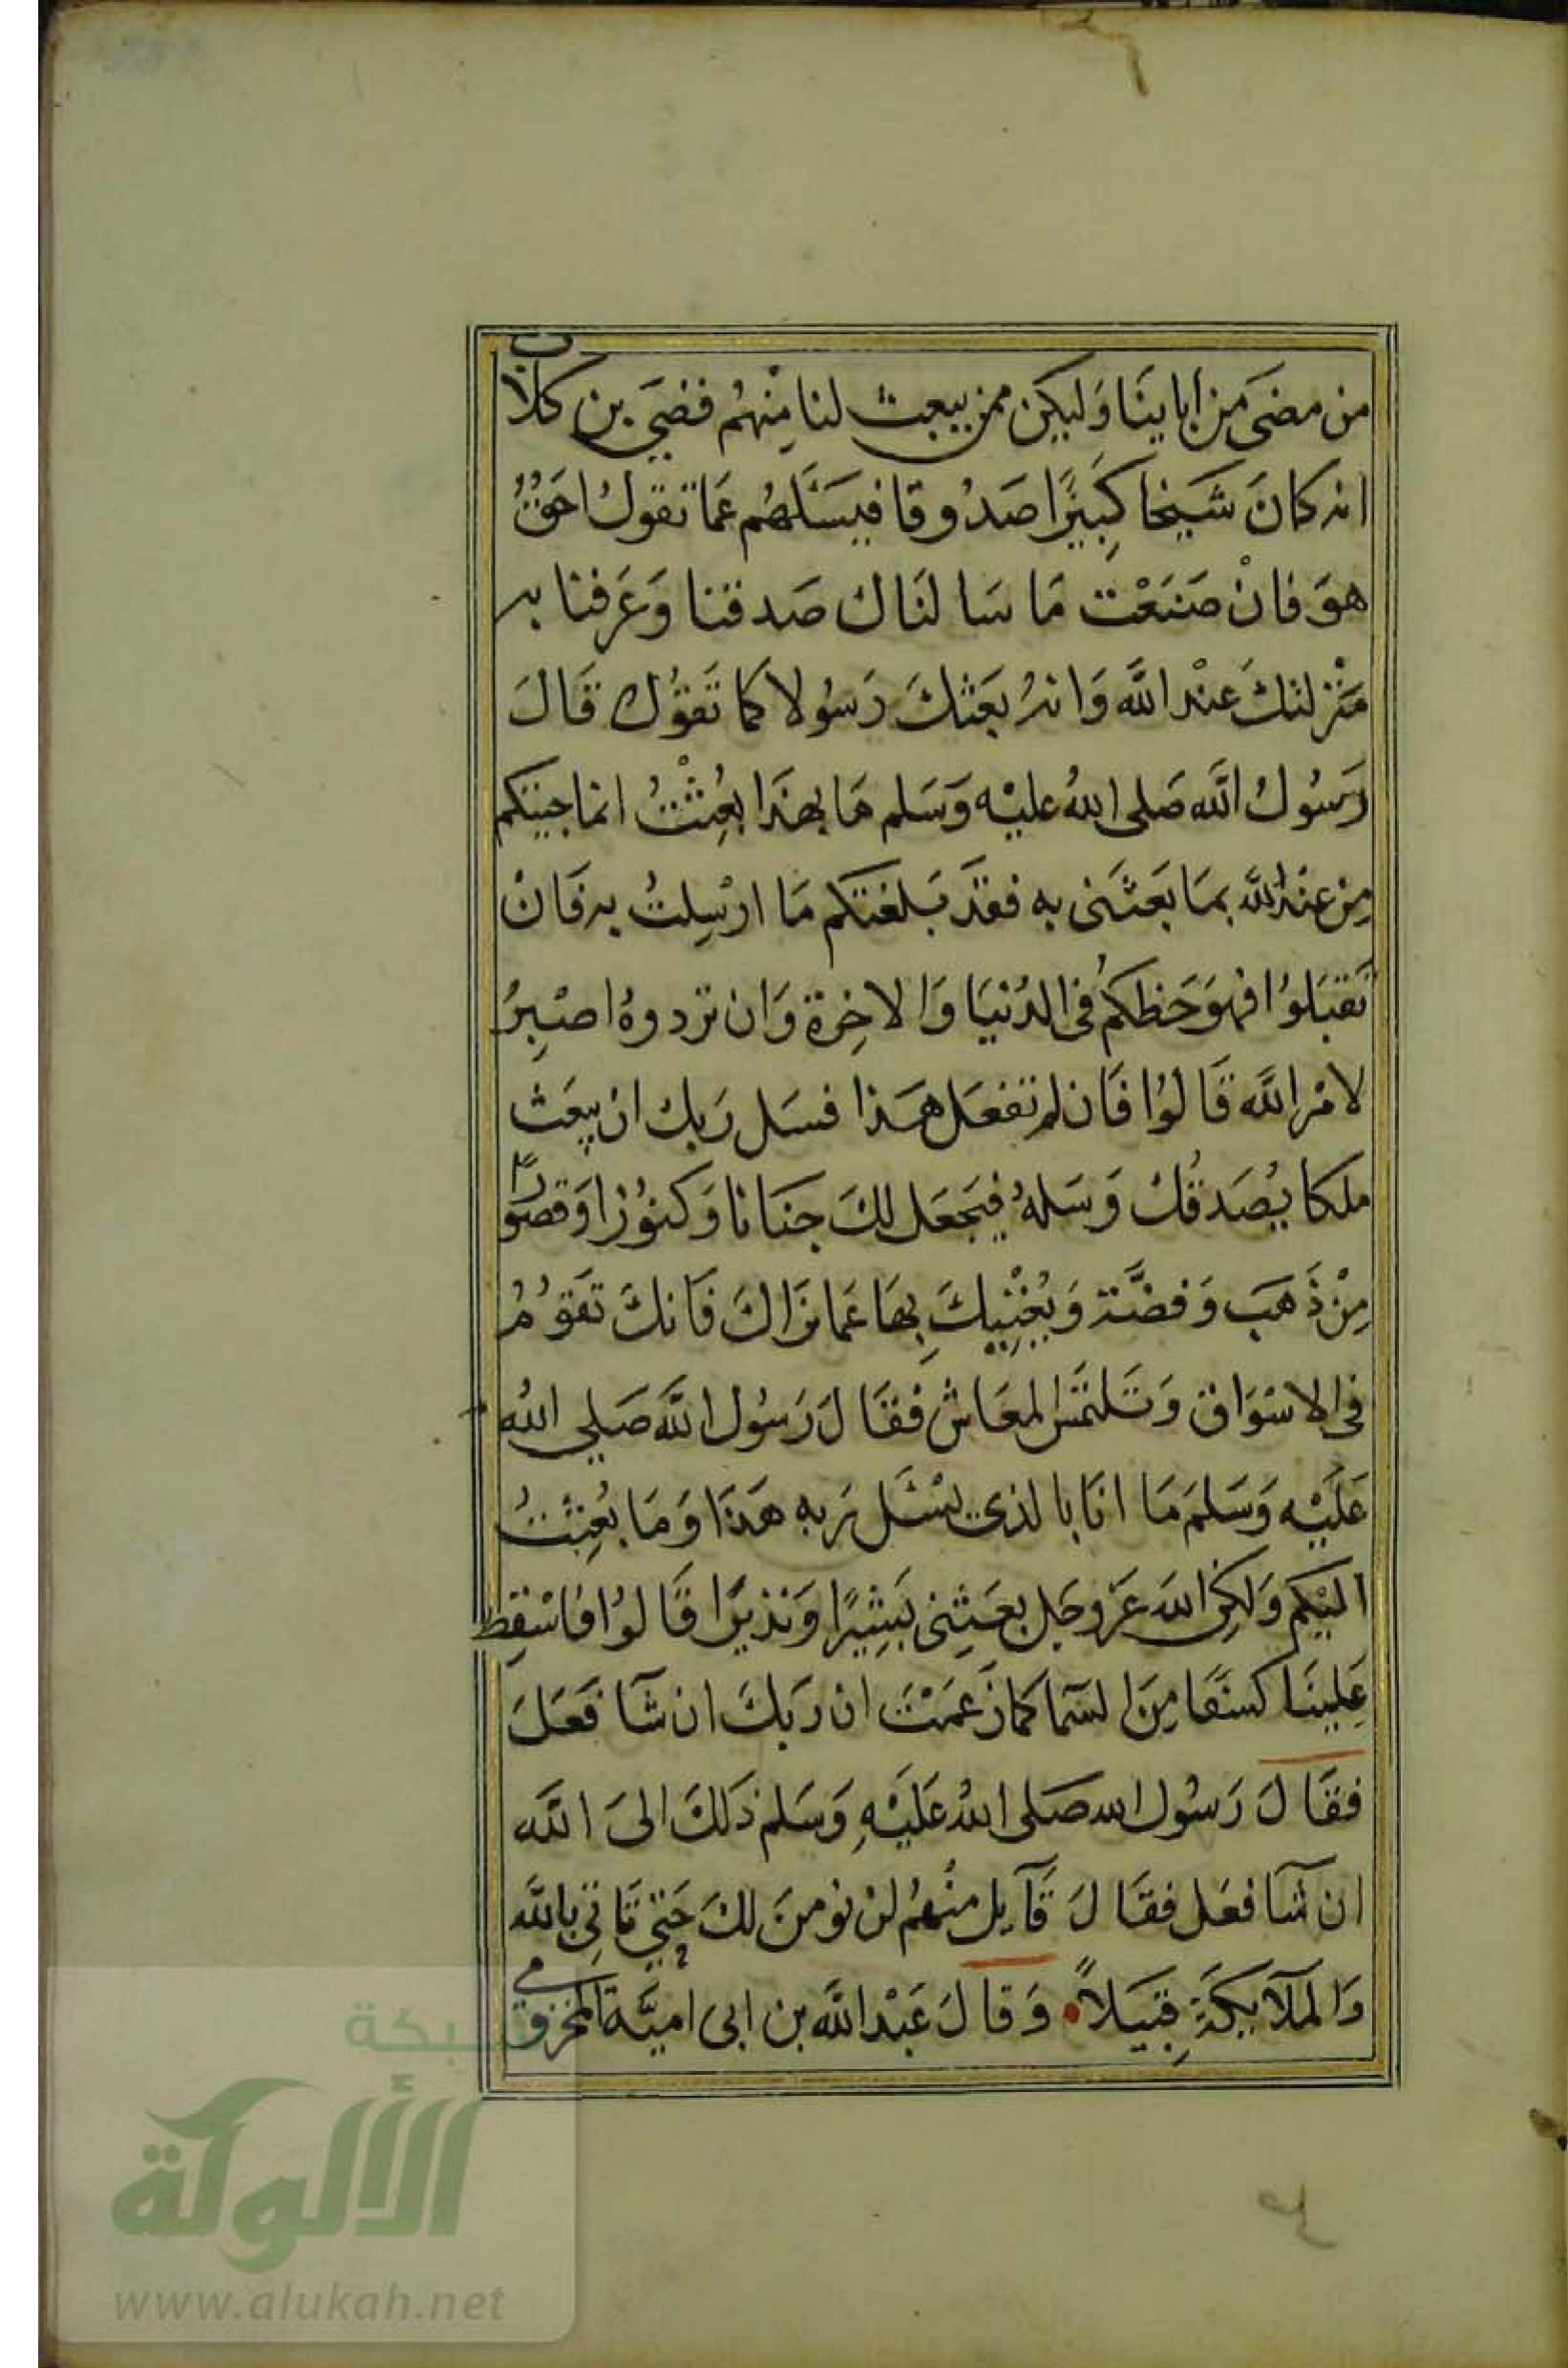 من مضَى مَن ابايِنَا وَليكن ممن يبعث لنا مِنهُم قصَي بن كلاب
انه كانَ شَيخا كَبِيرًا صَدُوقا فيسَئَلهُم عَما تقولُ احَقٌ
هوَ فانْ صَنَعْت مَا سَا لنَاك صَدقنا وَعَرفنا به
مَنْزلتك عنْد اللَّه وَانهُ بعَثكَ رَسُولا كما تَقوُل قَالَ
رَسُول اللَّه صَلى اللهُ عليْه وَسَلم مَا بهذَا بعُثِتُ انما جيتكم
مِن عنْد اللَّه بمَا بَعَثَنى به فقدَ بَلغتكم مَا ارْسِلتُ به فَانْ
تَقبَلوُا فهوَ حَظكمُ فى الدُنيَا وَالاخِرة وَان تردوهُ اصْبِرُ
لامْر اللَّه قَالوُا فَان لم تفعَل هَذا فسَل رَبك ان يبعَث
ملكا يُصَدقُك وَسَلهُ فيَجعَل لكَ جنَانا وَكنوُزا وَقصورًا
مِنْ ذَهَب وَفضَّة وَيُغْنِيكَ بِهَا عَما نرَاكَ فَانكَ تَقوُمُ
فى الاسْوَاق وَتَلتمَسَ المعَاش فقَالَ رَسُول اللَّه صَلي اللهُ
عَلَيْه وَسَلمَ مَا انَا بالذى يسْئَل رَبه هَذَا وَمَا بُعِثتُ
اليْكم وَلكِن اللهَ عَز وجَل بعَثِنى بَشِيرًا وَنذيرًا قَالوُا فاسْقِط
عَلينَا كسَفًا مِنَ السَمآ كما زَعمَتَ ان رَبكَ ان شآ فعَلَ
فقَالَ رَسُول الله صَلى اللهُ عَلَيْهِ وَسَلم ذلكَ الىَ اللَّه
ان شآ فعَل فقَالَ قآيل منْهُم لن نومنَ لكَ حَتي تَاتِي باللَّه
وَالملآيكَةِ قبَيلاً وَقالَ عَبْد اللَّه بن ابى اميَّة المخزومي
شبكة
الألوكة
www.alukah.net